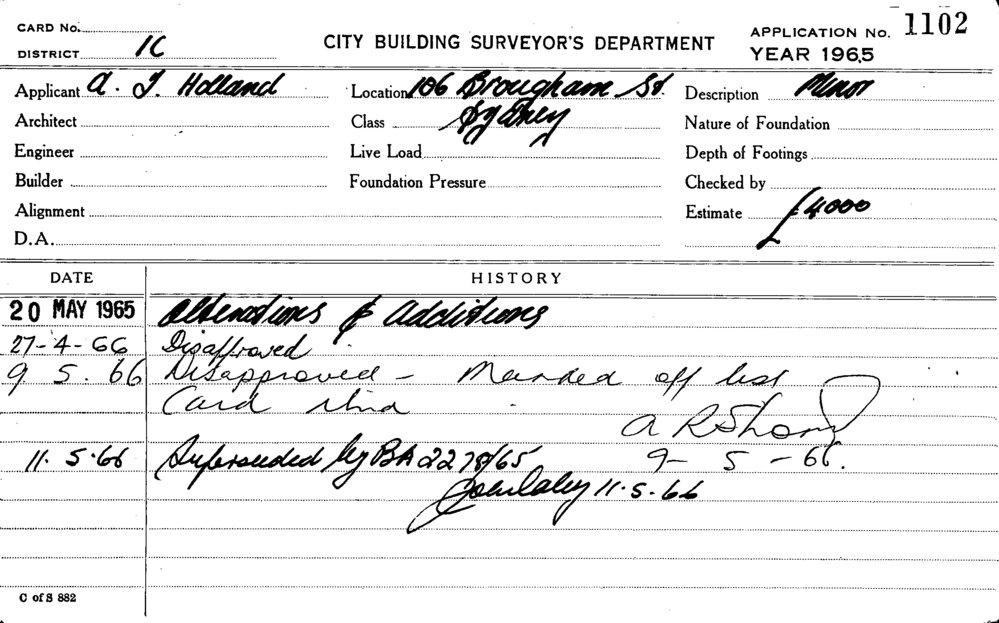 CARD No.
DISTRICT 1C
CITY BUILDING SURVEYOR'S DEPARTMENT
APPLICATION No. 1102
YEAR 1965
Applicant A. J. Holland
Location 106 Brougham St.
Description Minor
Architect
Class Sydney
Nature of Foundation
Engineer
Live Load
Depth of Footings
Builder
Foundation Pressure
Checked by
Alignment
Estimate £4000
D.A.
DATE
HISTORY
20 MAY 1965 Alterations & Additions
27-4-66 Disapproved
9 5. 66 Disapproved - Marked off list
Card
A R
9- 5 -66.
11. 5.66 Superseded by BA 2278/65
11.5.66
C of S 882